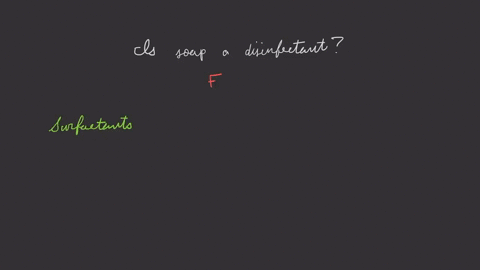 Is soap a disinfectant?
F
Surfactants